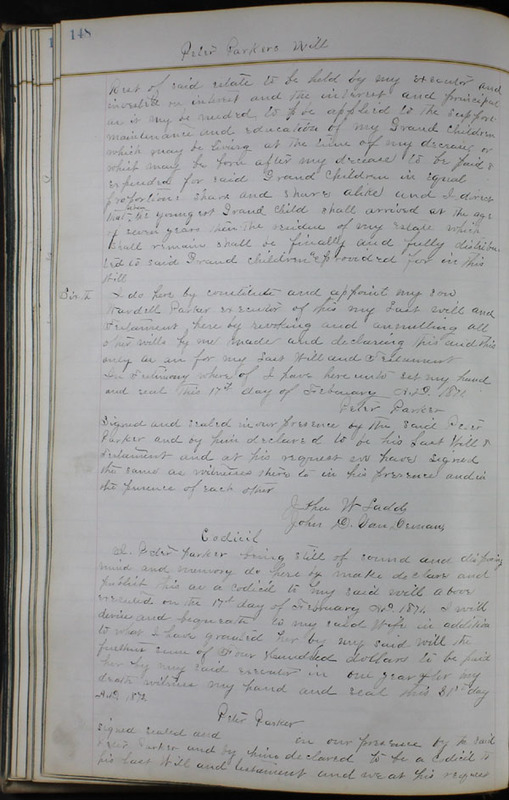 148
Peter Parkers Will
Rest of said estate to be held by my executor and
invested on interest and the interest and principal
as is my be needed to be applied to the support
maintenance and education of my Grand Children
which may be living at the time of my decease or
which may be born after my decease to be paid &
expended for said Grand Children in equal
proportions share and share alike and I direct
that when the youngest Grand Child shall arrived at the age
of seven years then the residue of my estate which
shall remain shall be finally and fully distribu
ted to said Grand Children as provided for in this
Will
I do here by constitute and appoint my son
Wardell Parker executor of this my Last will and
Testament here by revoking and annulling all
other wills by me made and declaring this and this
only as an for my Last Will and Testament
In Testimony where of I have here unto set my hand
and seal this 17th day of February A.D. 1871
Peter Parker
Signed and sealed in our presence by the said Peter
Parker and by him declared to be his Last Will &
Testament and at his request we have signed
the same as witnesses there to in his presence and in
the presence of each other
W Ladd
John D. Van
Codicil
I. Peter Parker being still of sound and disposing
mind and memory do here by make declare and
publish this as a codicil to my said will above
executed on the 17th day of February A.D. 1871. I will
devise and bequeath to my said Wife in addition
to what I have granted her by my said will the
further sum of Four Hundred dollars to be paid
her by my said executor in one year after my
death witness my hand and seal this 21st day
A.D. 187
Peter Parker
signed sealed and in our presence by the said
Peter Parker and by him declared to be a codicil to
his Last Will and testament and we at his request